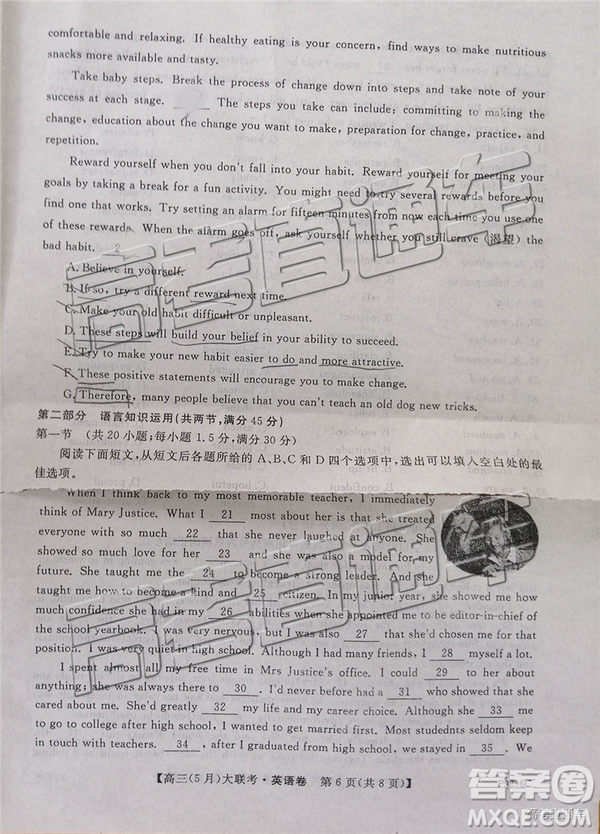 comfortable and relaxing. If healthy eating is your concern, find ways to make nutritious
snacks more available and tasty.
Take baby steps. Break the process of change down into steps and take note of your
success at each stage. ____ The steps you take can include: committing to making the
change, education about the change you want to make, preparation for change, practice, and
repetition.
Reward yourself when you don't fall into your habit. Reward yourself for meeting your
goals by taking a break for a fun activity. You might need to try several rewards before you
find one that works. Try setting an alarm for fifteen minutes from now each time you use one
of these rewards. When the alarm goes off, ask yourself whether you still crave (渴望) the
bad habit.
A. Believe in yourself.
B. If so, try a different reward next time.
C. Make your old habit difficult or unpleasant.
D. These steps will build your belief in your ability to succeed.
E. Try to make your new habit easier to do and more attractive.
F. These positive statements will encourage you every day.
G. Therefore, many people believe that you can't teach an old dog new tricks.
第二部分 语言知识运用(共两节,满分45分)
第一节 (共20小题;每小题1.5分,满分30分)
阅读下面短文,从短文后各题所给的A、B、C和D四个选项中,选出可以填入空白处的最
佳选项。
When I think back to my most memorable teacher, I immediately
think of Mary Justice. What I 21 most about her is that she treated
everyone with so much 22 that she never laughed at anyone. She
showed so much love for her 23 and she was also a model for my
future. She taught me the 24 to become a strong leader. And she
taught me how to become a kind and 25 citizen. In my junior year, she showed me how
much confidence she had in my 26 abilities when she appointed me to be editor-in-chief of
the school yearbook. I was very nervous, but I was also 27 that she'd chosen me for that
position. I was very quiet in high school. Although I had many friends, I 28 myself a lot.
I spent almost all my free time in Mrs Justice's office. I could 29 to her about
anything, she was always there to 30 . I'd never before had a 31 who showed that she
cared about me. She'd greatly 32 my life and my career choice. Although she 33 me
to go to college after high school, I wanted to get married first. Most studednts seldom keep
in touch with their teachers. 34 , after I graduated from high school, we stayed in 35 . We
【高三(5月)大联考·英语卷 第6页(共8页)】
高考直通车
高考直通车
答案圈